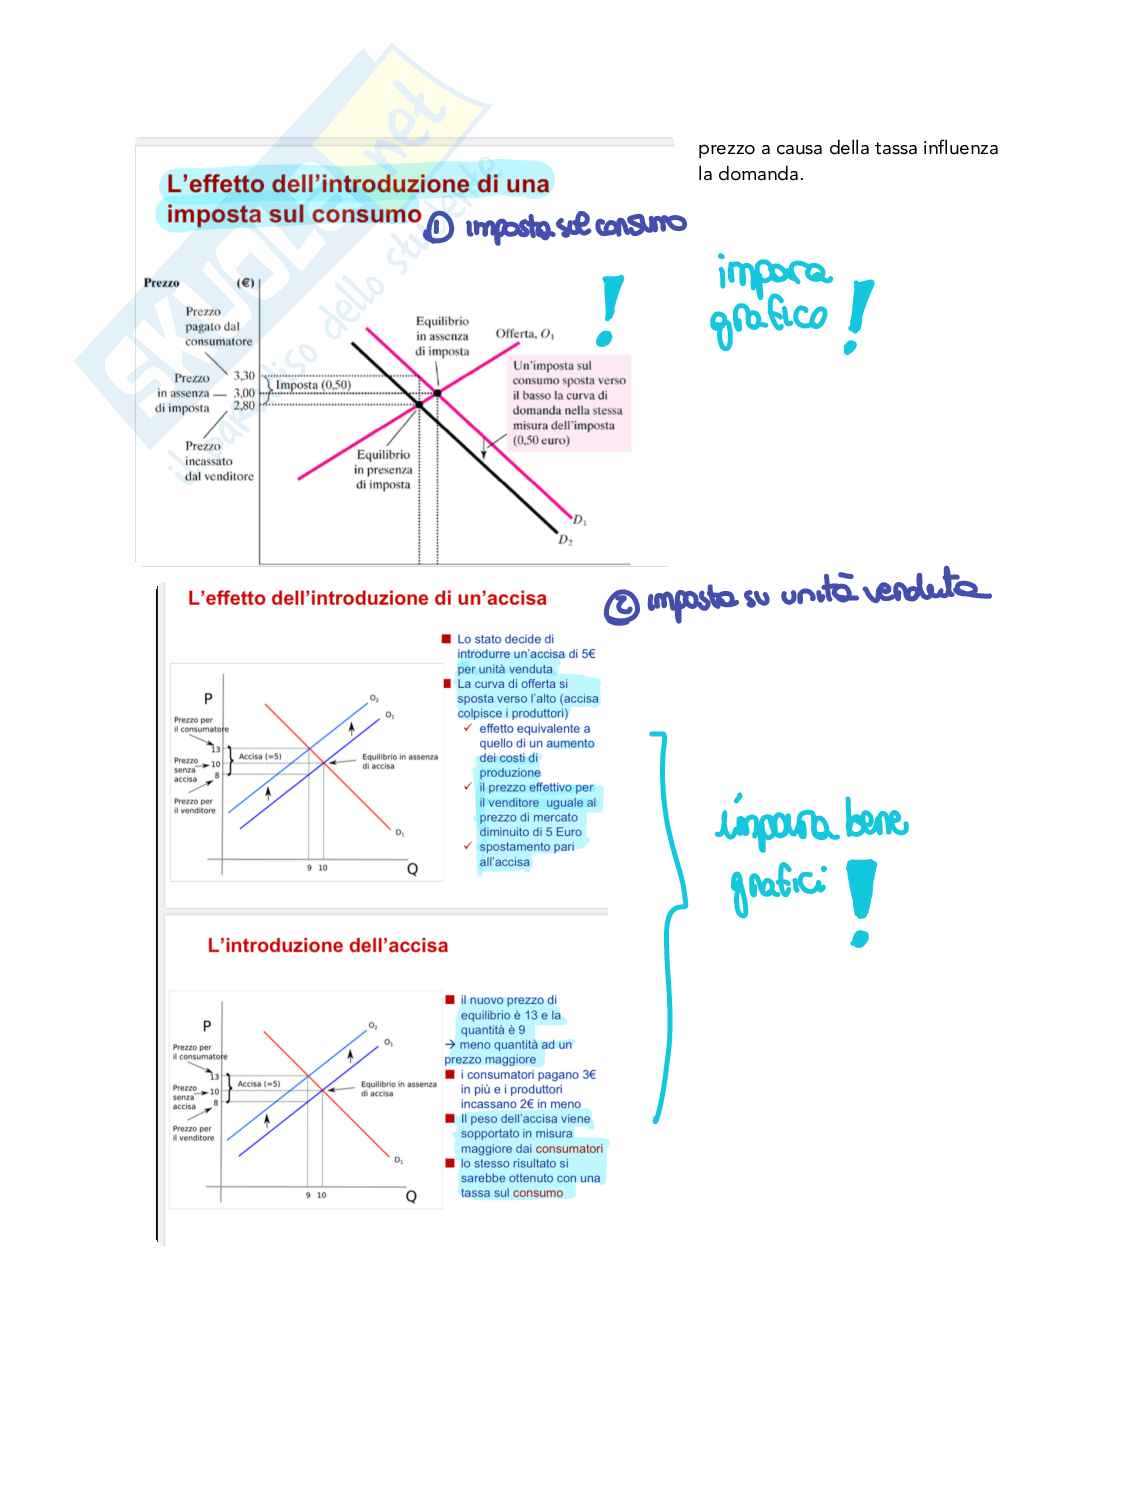 prezzo a causa della tassa influenza
la domanda.
SKUOLA.net
il paradiso dello studente
L'effetto dell'introduzione di una
imposta sul consumo
① imposta sul consumo
!
impara
grafico !
Prezzo (€)
Prezzo
pagato dal
consumatore
Prezzo
in assenza
di imposta
Prezzo
incassato
dal venditore
3,30
3,00
2,80
Imposta (0,50)
Equilibrio
in assenza
di imposta
Offerta, O₁
Un'imposta sul
consumo sposta verso
il basso la curva di
domanda nella stessa
misura dell'imposta
(0,50 euro)
Equilibrio
in presenza
di imposta
D₁
D₂
L'effetto dell'introduzione di un'accisa
② imposta su unità venduta
Lo stato decide di
introdurre un'accisa di 5€
per unità venduta
La curva di offerta si
sposta verso l'alto (accisa
colpisce i produttori)
✓ effetto equivalente a
quello di un aumento
dei costi di
produzione
✓ il prezzo effettivo per
il venditore uguale al
prezzo di mercato
diminuito di 5 Euro
✓ spostamento pari
all'accisa
P
Prezzo per
il consumatore
13
Prezzo
senza
accisa
10
8
Prezzo per
il venditore
Accisa (=5)
O₂
O₁
Equilibrio in assenza
di accisa
D₁
9 10
Q
impara bene
grafici !
L'introduzione dell'accisa
il nuovo prezzo di
equilibrio è 13 e la
quantità è 9
→ meno quantità ad un
prezzo maggiore
i consumatori pagano 3€
in più e i produttori
incassano 2€ in meno
Il peso dell'accisa viene
sopportato in misura
maggiore dai consumatori
lo stesso risultato si
sarebbe ottenuto con una
tassa sul consumo
P
Prezzo per
il consumatore
13
Prezzo
senza
accisa
10
8
Prezzo per
il venditore
Accisa (=5)
O₂
O₁
Equilibrio in assenza
di accisa
D₁
9 10
Q